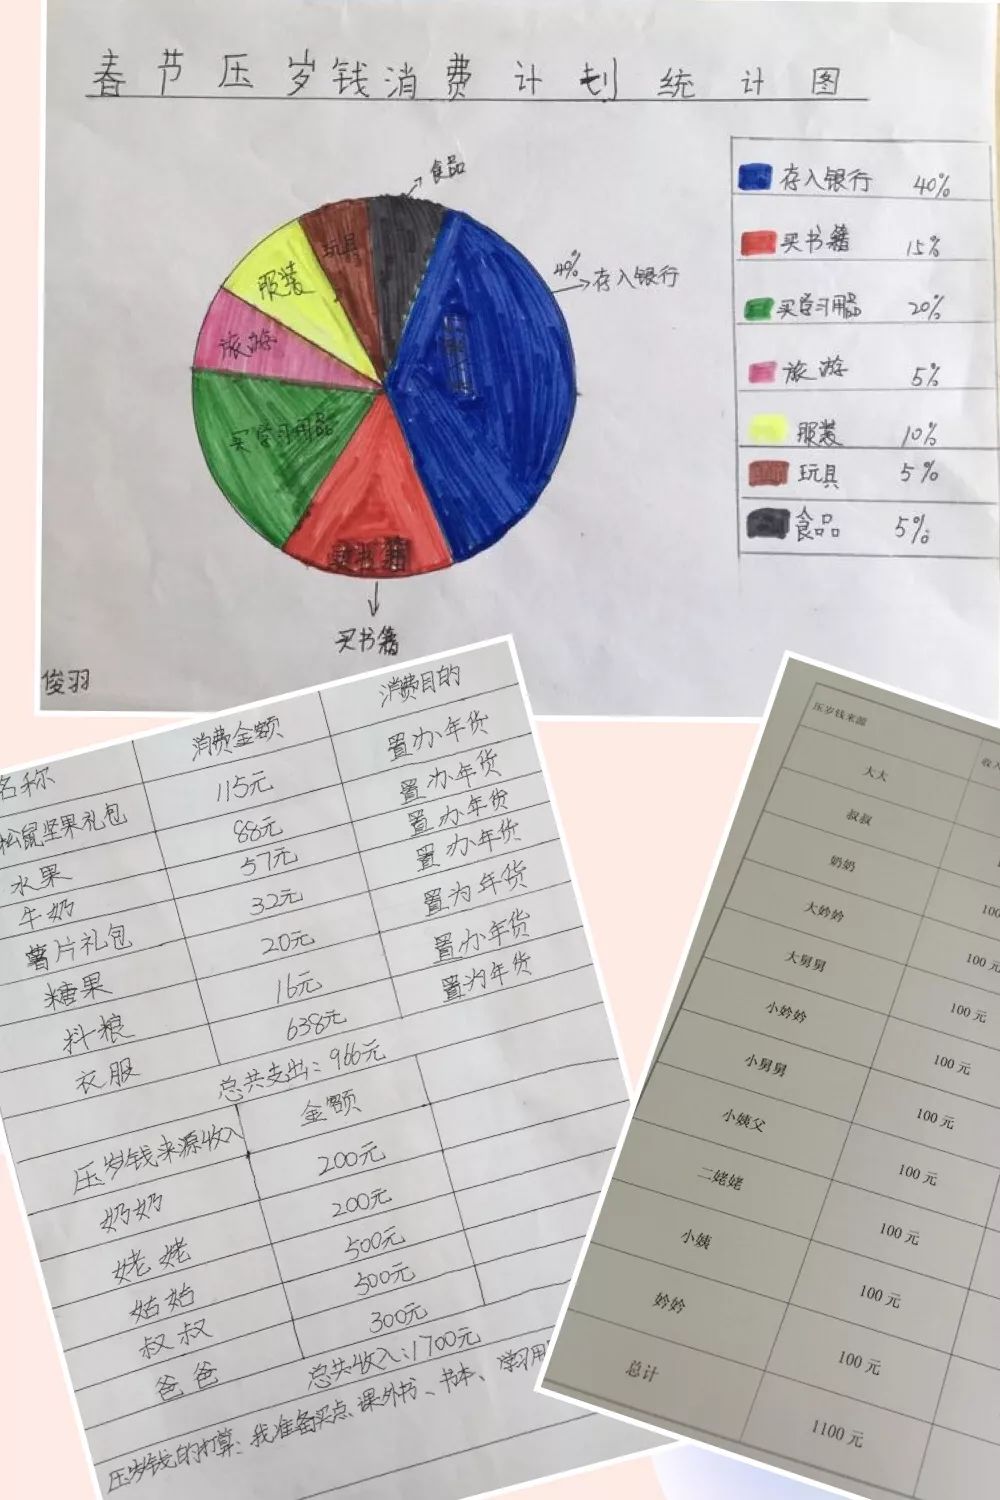 春节压岁钱消费计划统计图
食品
玩具
服装
旅游
买学习用品
买书籍
买书籍
40% 存入银行
存入银行 40%
买书籍 15%
买学习用品 20%
旅游 5%
服装 10%
玩具 5%
食品 5%
俊羽
名称 消费金额 消费目的
松鼠坚果礼包 115元 置办年货
水果 88元 置办年货
牛奶 57元 置办年货
薯片礼包 32元 置办年货
糖果 20元 置为年货
抖粮 16元 置办年货
衣服 638元 置为年货
总共支出:966元
压岁钱来源收入 金额
奶奶 200元
姥姥 200元
姑姑 500元
叔叔 500元
爸爸 300元
总共收入:1700元
压岁钱的打算:我准备买点课外书、书本、学习用
压岁钱来源 收入
大大
叔叔
奶奶 100
大妗妗 100元
大舅舅 100元
小妗妗 100元
小舅舅 100元
小姨父 100元
二姥姥 100元
小姨 100元
妗妗 100元
总计 1100元